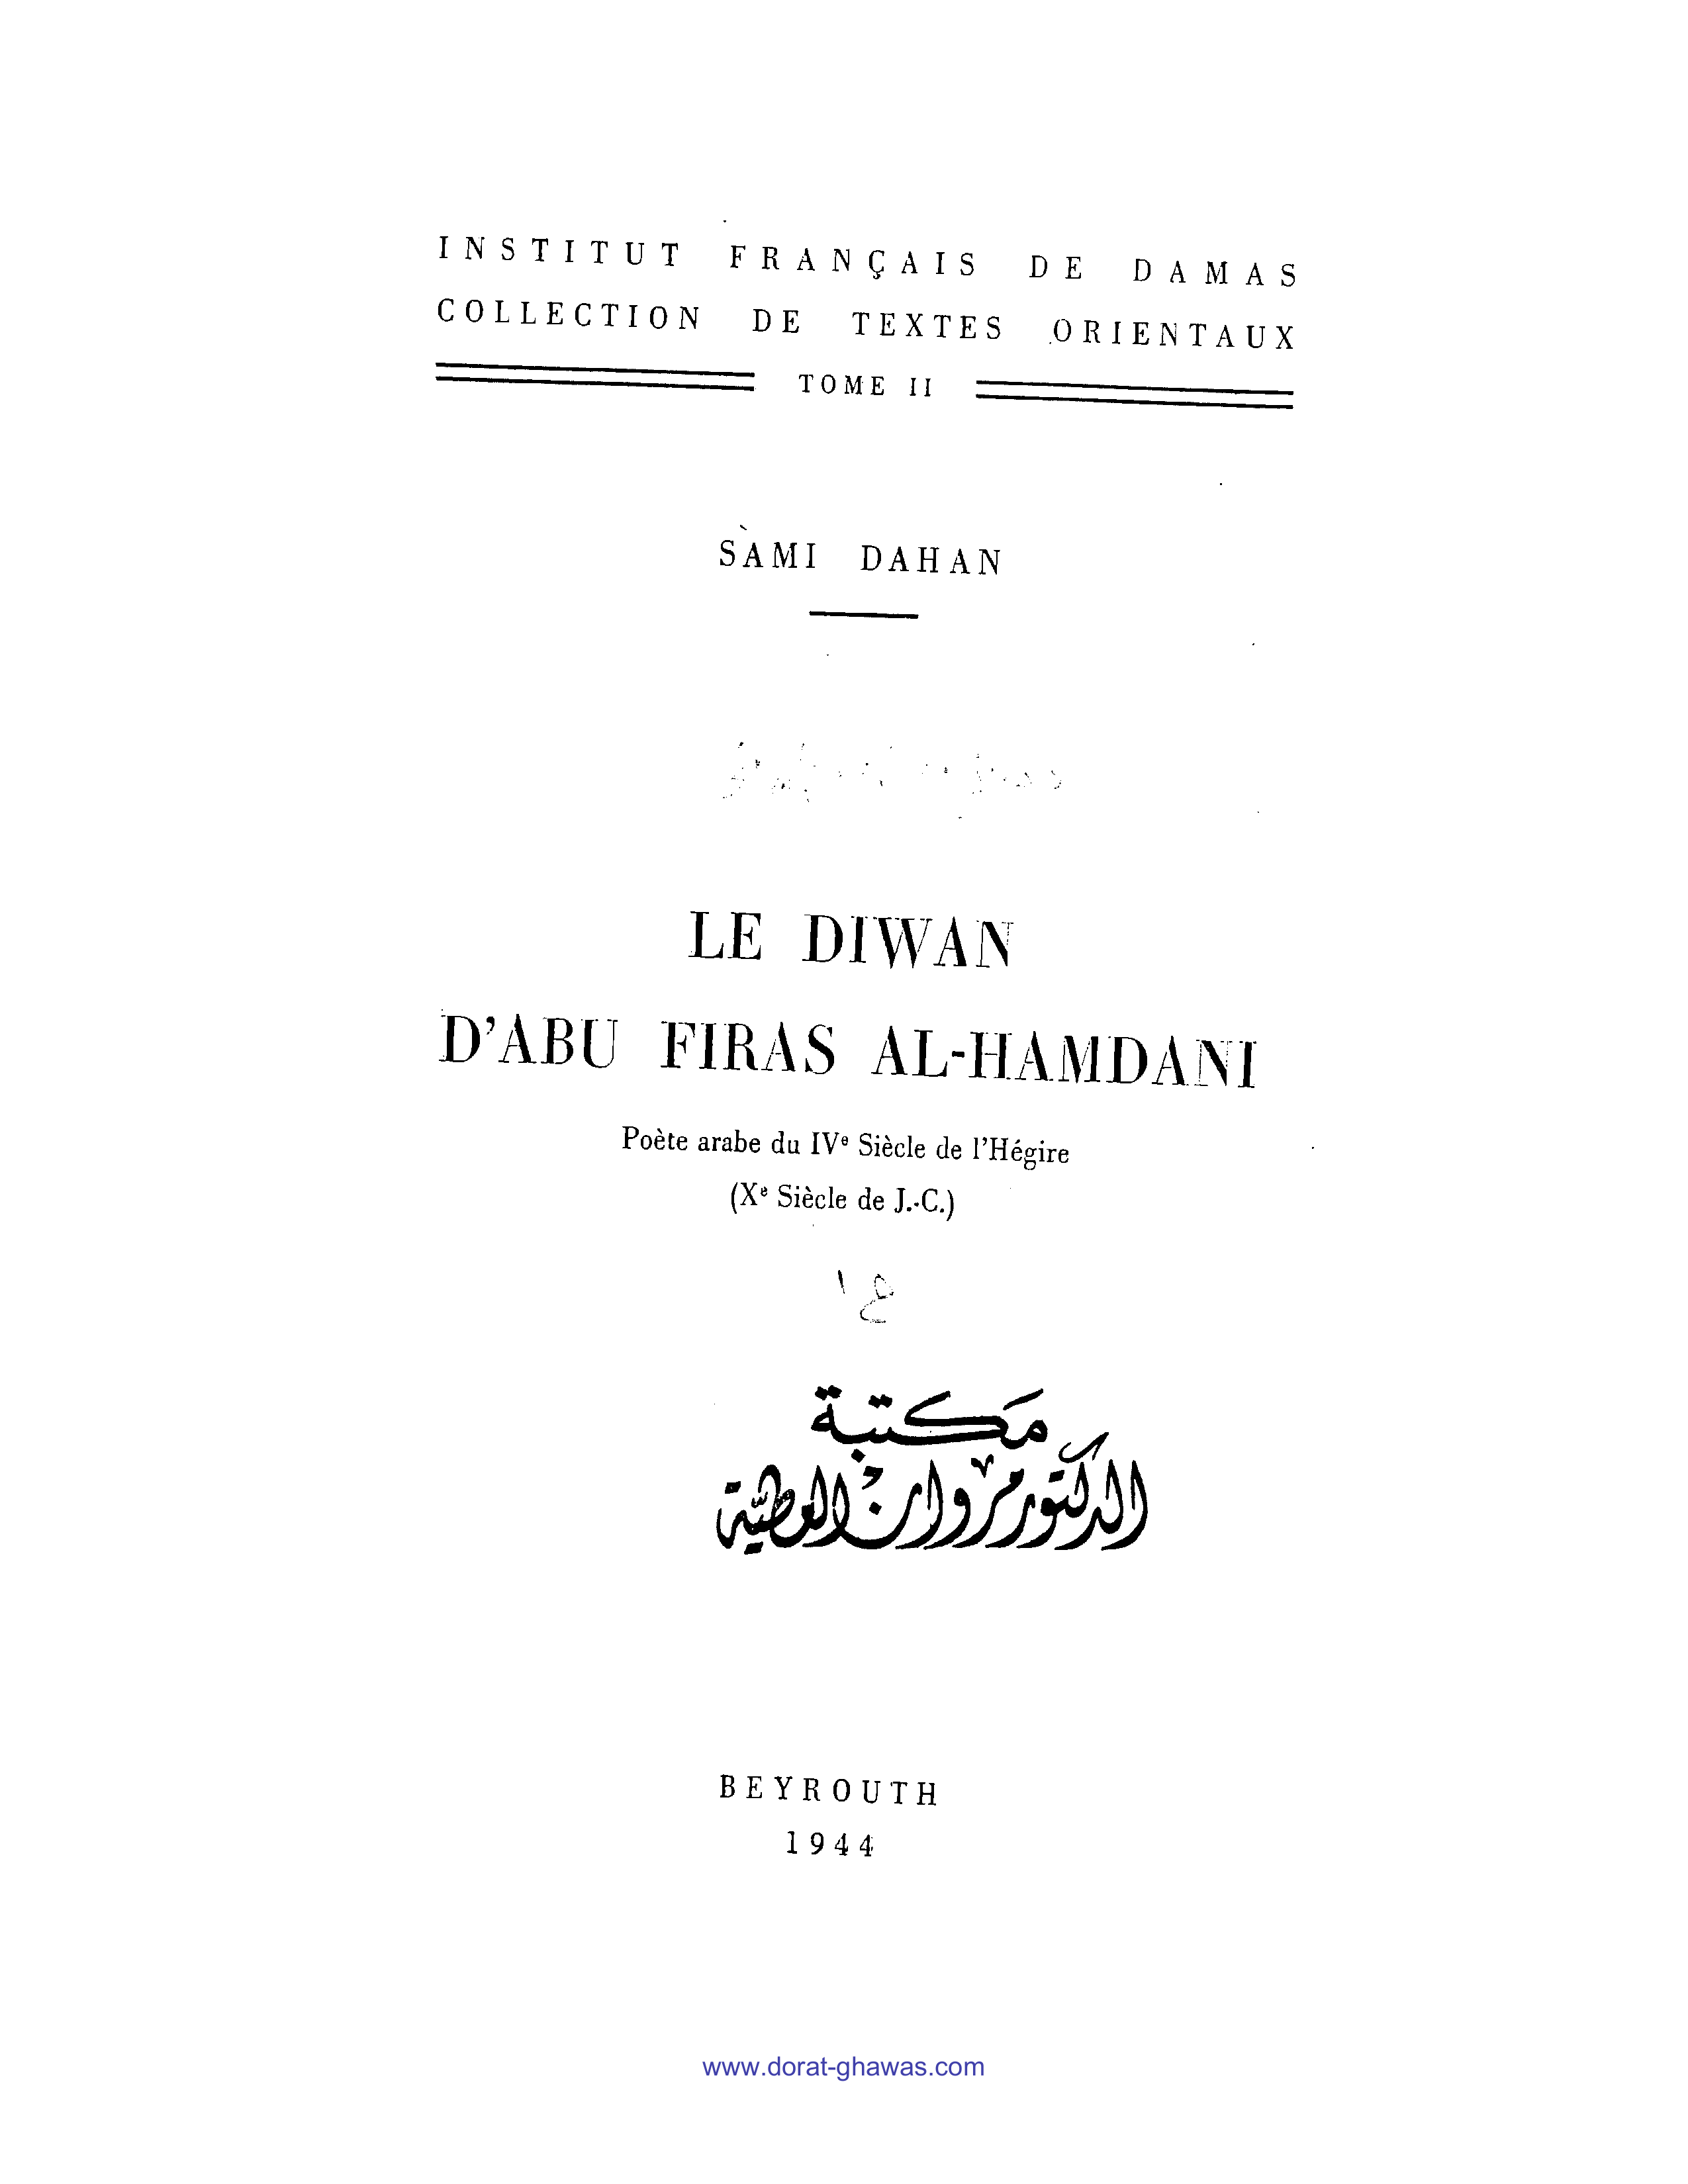 INSTITUT FRANÇAIS DE DAMAS
COLLECTION DE TEXTES ORIENTAUX
TOME II
SÀMI DAHAN
LE DIWAN
D'ABU FIRAS AL-HAMDANI
Poète arabe du IVᵉ Siècle de l'Hégire
(Xᵉ Siècle de J.-C.)
مكتبة
الدكتور مروان العطية
BEYROUTH
1944
www.dorat-ghawas.com